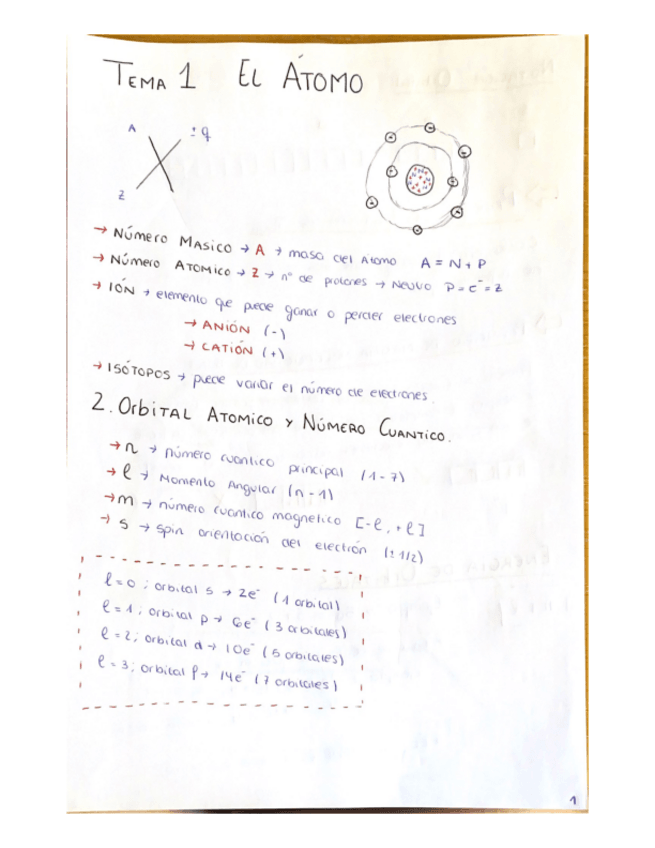 TEMA 1 EL ÁTOMO
A ± q
X
Z
→ NÚMERO MASICO → A → masa del Atomo A = N + P
→ NÚMERO ATOMICO → Z → nº de protones → Neutro P = e⁻ = Z
→ IÓN → elemento que puede ganar o perder electrones
→ ANIÓN (-)
→ CATIÓN (+)
→ ISÓTOPOS → puede variar el número de electrones.
2. ORBITAL ATOMICO Y NÚMERO CUANTICO.
→ n → número cuantico principal (1-7)
→ ℓ → Momento Angular (n-1)
→ m → número cuantico magnetico [-ℓ, +ℓ]
→ s → spin orientación del electrón (±1/2)
ℓ = 0 ; orbital s → 2e⁻ (1 orbital)
ℓ = 1 ; orbital p → 6e⁻ (3 orbitales)
ℓ = 2 ; orbital d → 10e⁻ (5 orbitales)
ℓ = 3 ; orbital f → 14e⁻ (7 orbitales)
1